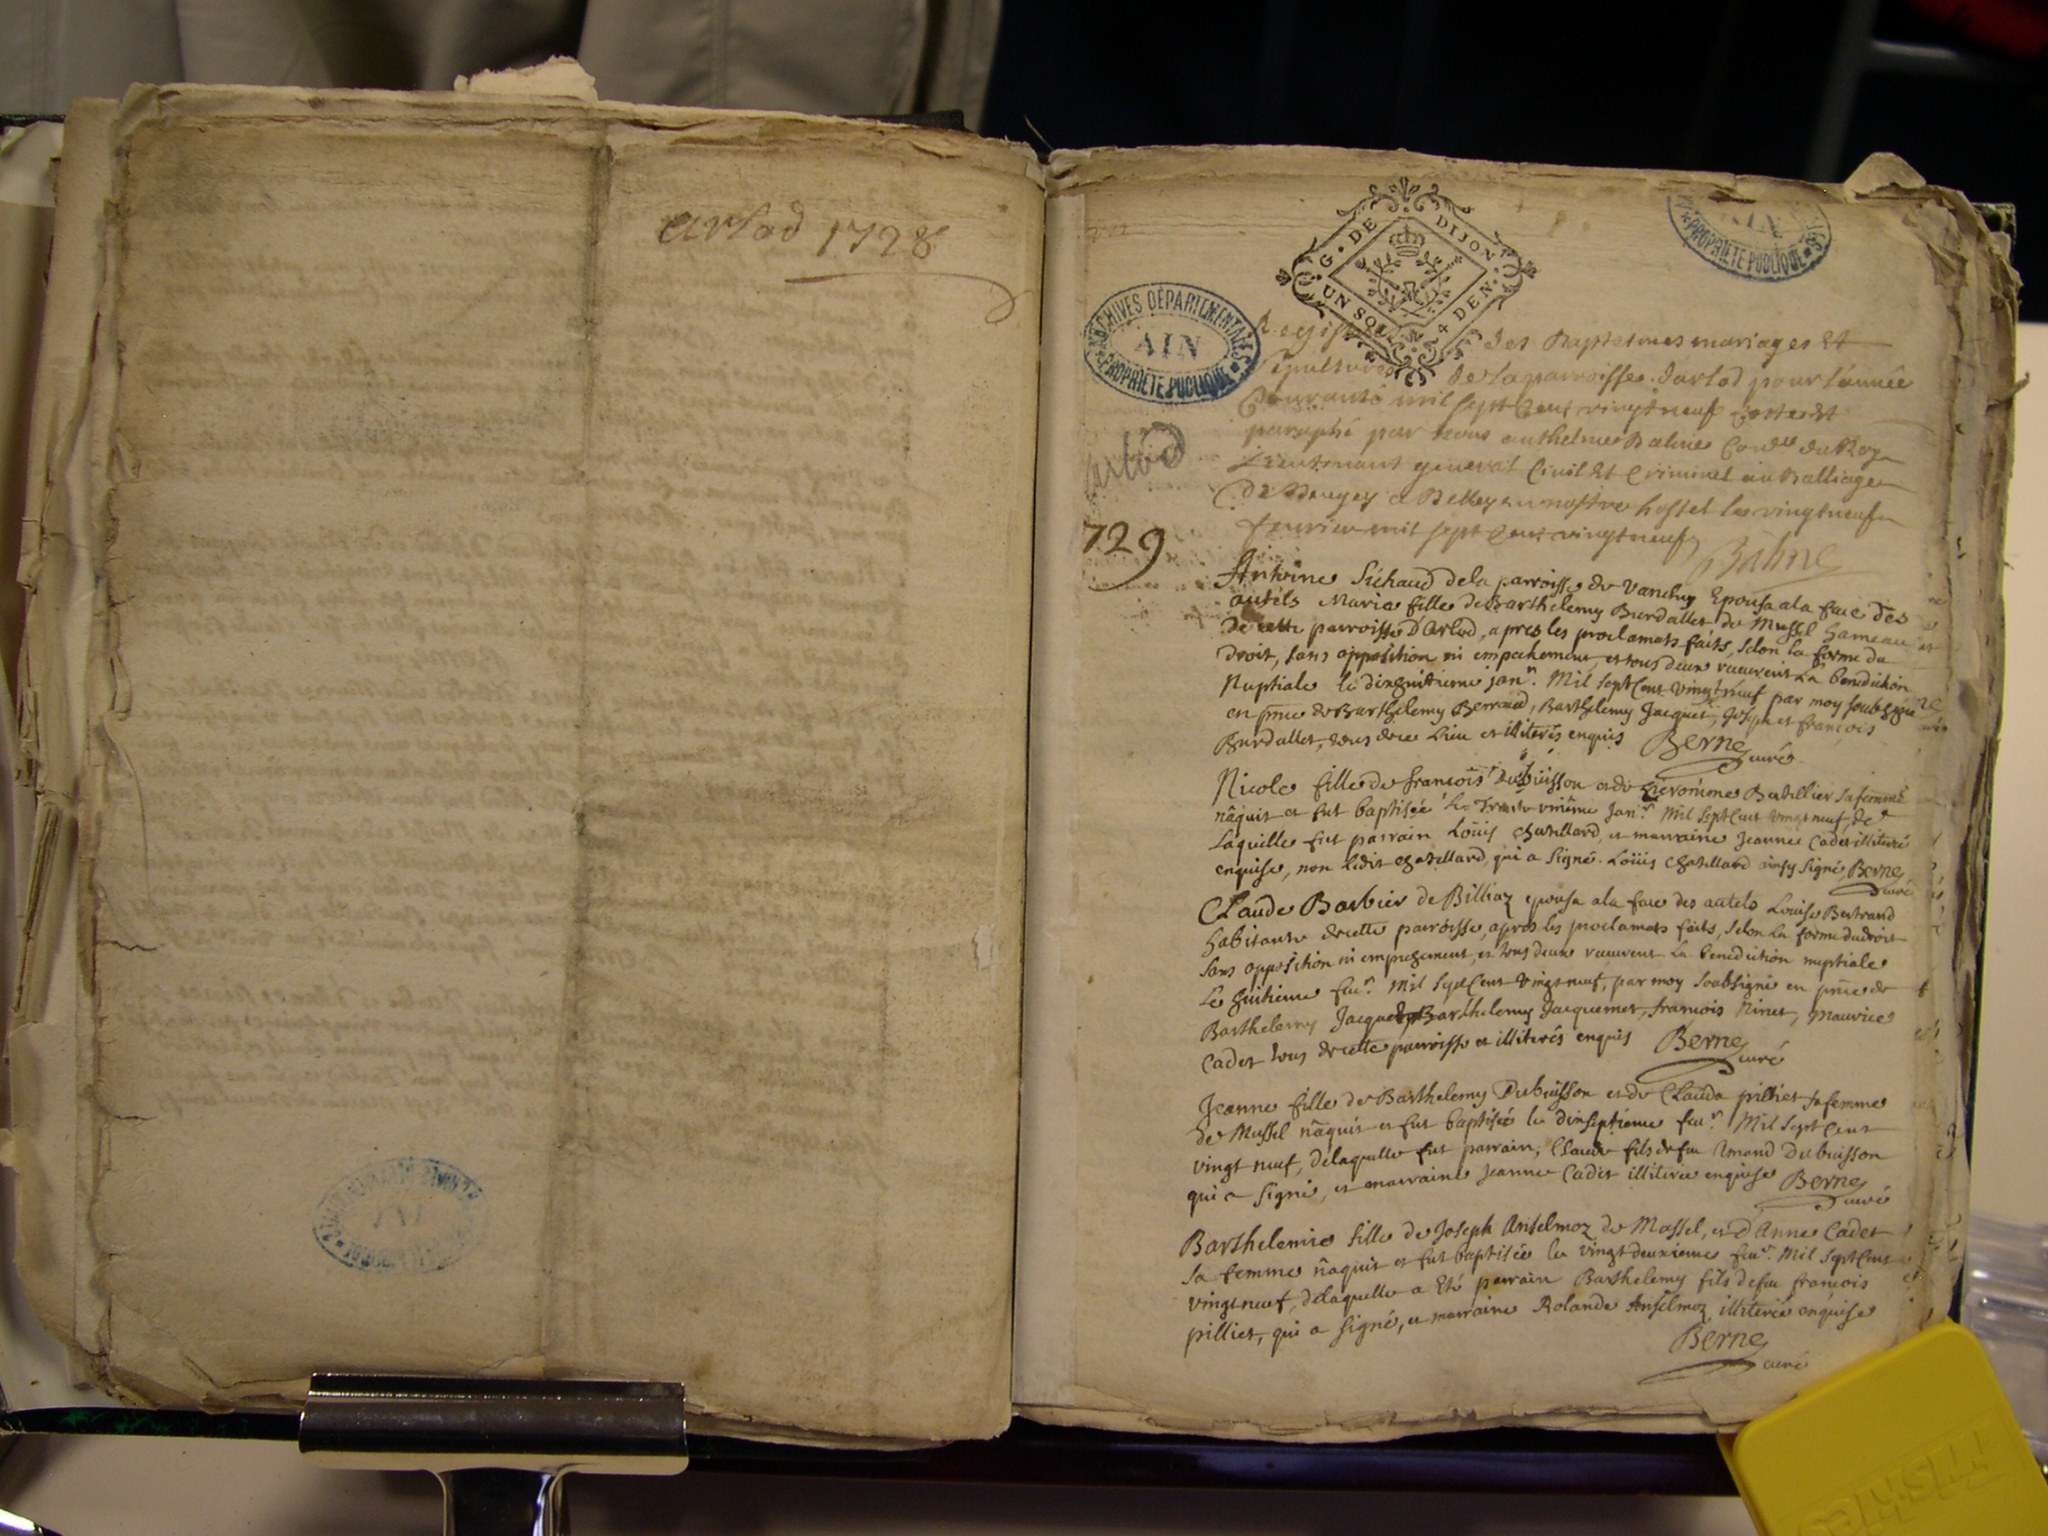 Arlod 1728
G. DE DIJON
UN SOL N. 4 DEN.
ARCHIVES DÉPARTEMENTALES
AIN
PROPRIÉTÉ PUBLIQUE
AIN
PROPRIÉTÉ PUBLIQUE
Registre des Baptesmes mariages Et
Sepultures de la parroisse darlod pour l'année
Courante mil sept Cent vingt neuf Cotté Et
paraphé par Nous anthelme Balme Con.er du Roy
Lieutenant general Civil Et Criminel au Balliage
De Beugey a Belley en nostre hostel le vingt neuf
fevrier mil sept Cent vingt neuf
Balme
Arlod
729
Antoine Sichaud de la parroisse de Vanchy Epousa a la face des
autels Marie fille de Barthelemy Burdallet de Mussel hameau
de cette parroisse d'Arlod, apres les proclamats faits, selon la forme du
droit, sans opposition ni empechement, et tous deux reçeurent La benediction
Nuptiale le dixhuitieme jan.r Mil sept Cent vingt neuf par moy soubsigné
en pnce de Barthelemy Berraud, Barthelemy Jacquet, Joseph et françois
Burdallet, tous de ce Lieu et illiterés enquis Berne curé
Nicole fille de françois Dubuisson et de hieronime Butillier sa femme
nâquit et fut baptisée le Trente unieme Jan.r Mil sept Cent vingt neuf, de
Laquelle fut parrain Loüis Chatillard, et marraine Jeanne Cadet illiterée
enquise, non ledit Chatillard qui a signé. Loüis Chatillard ainsy signé Berne
curé
Claude Barbier de Billiaz epousa a la face des autels Louise Bertrand
habitante de cette parroisse, apres les proclamats faits, selon La forme du droit
sans opposition ni empechement, et tous deux reçeurent La benediction nuptiale
Le huitieme feu.r Mil sept Cent vingt neuf, par moy soubsigné en pnce de
Barthelemy Jacquet, Barthelemy Jacquemet, françois Ninet, Maurice
Cadet tous de cette parroisse et illiterés enquis Berne curé
Jeanne fille de Barthelemy Dubuisson et de Clauda pilliet sa femme
de Mussel nâquit et fut baptisée le dixseptieme feu.r Mil sept Cent
vingt neuf, de laquelle fut parrain, Claude fils de feu Amand Dubuisson
qui a signé, et marraine Jeanne Cadet illiterée enquise Berne
curé
Barthelemie fille de Joseph Anselmoz de Mussel, et d'Anne Cadet
sa femme nâquit et fut baptisée le vingt deuxieme feu.r Mil sept Cent
vingt neuf, de laquelle a Eté parrain Barthelemy fils de feu françois
pilliet, qui a signé, et marraine Rolande Anselmoz illiterée enquise
Berne
curé